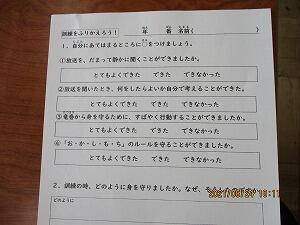 訓練をふりかえろう！　年　番 名前（　　　　）
1．自分にあてはまるところに○をつけましょう。
①放送を、だまって静かに聞くことができましたか。
とてもよくできた　できた　できなかった
②放送を聞いたとき、何をしたらよいか自分で考えることができましたか。
とてもよくできた　できた　できなかった
③竜巻から身を守るために、すばやく行動することができましたか。
とてもよくできた　できた　できなかった
④「お・か・し・も・ち」のルールを守ることができましたか。
とてもよくできた　できた　できなかった
2．訓練の時、どのように身を守りましたか。なぜ、
どのように